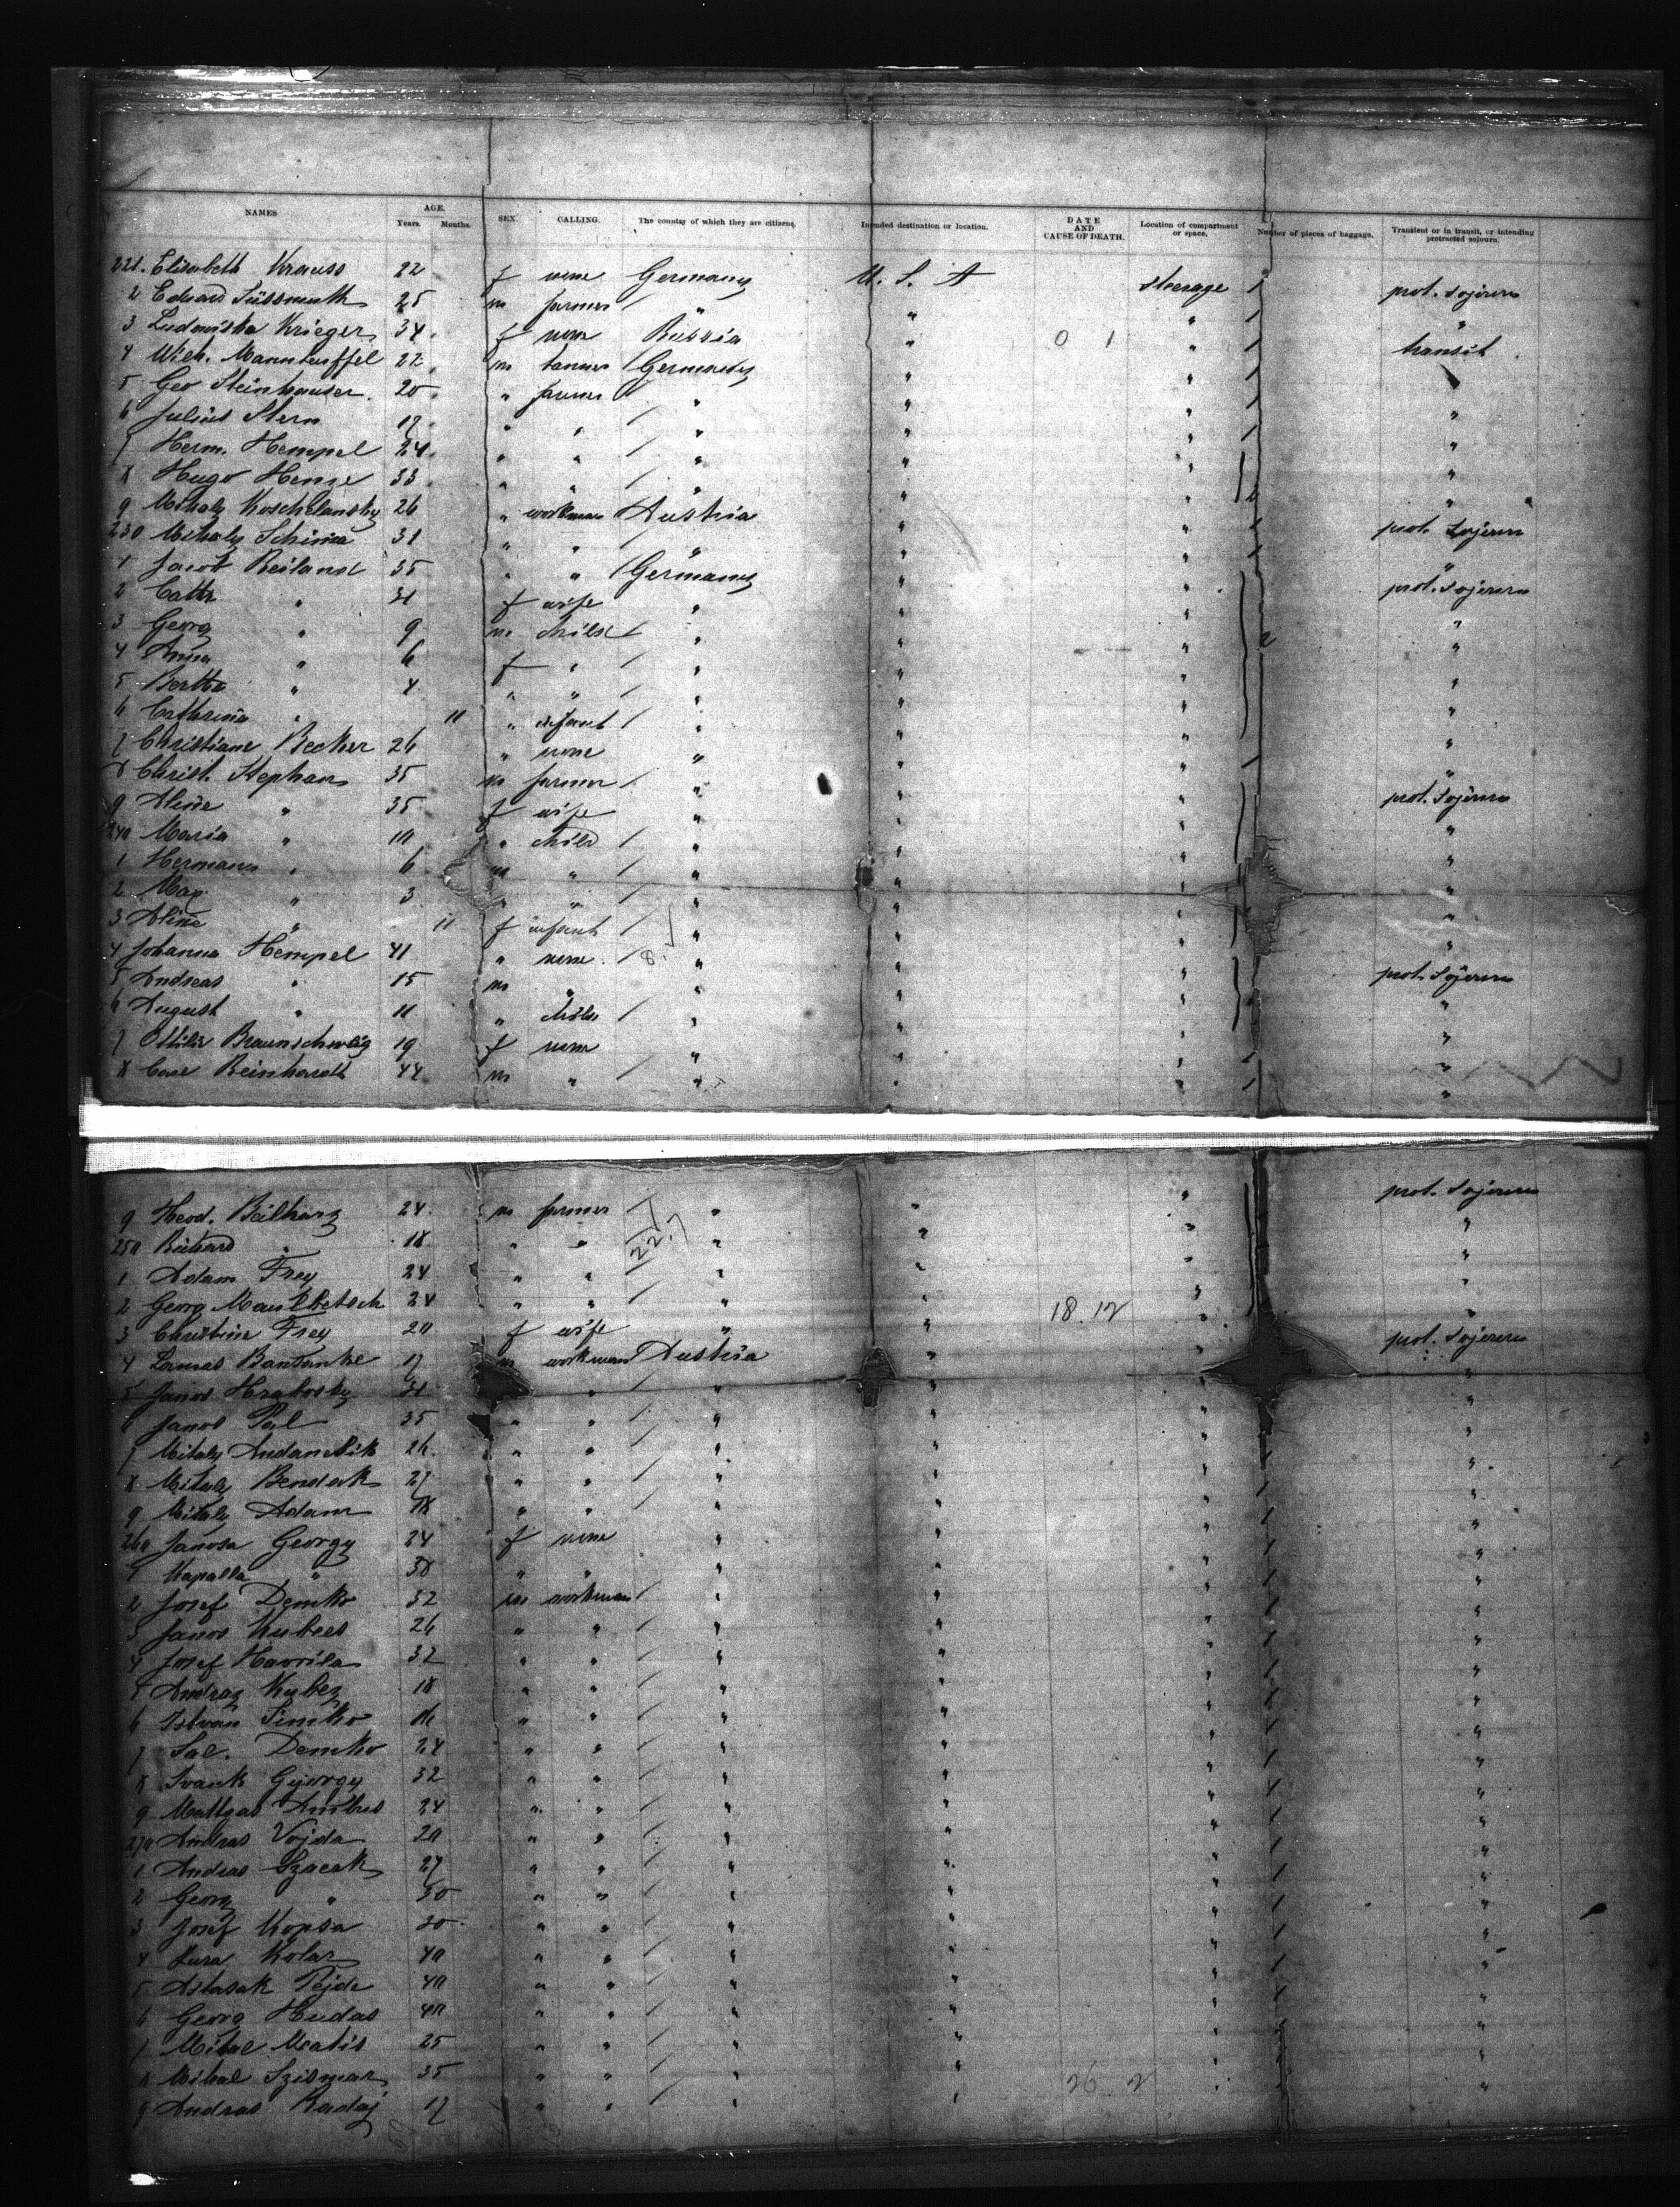 NAMES AGE. Years. Months. SEX. CALLING. The country of which they are citizens. Intended destination or location. DATE AND CAUSE OF DEATH. Location of compartment or space. Number of pieces of baggage. Transient or in transit, or intending protracted sojourn.
221. Elisabeth Krauss 22 f none Germany U. S. A steerage 1 prot. sojern
2 Eduard Süssmuth 25 m farmer " " " 1 "
3 Ludowika Krieger 34 f none Russia " 0 1 " 1 transit
4 Wilh. Mannteuffel 22 m tanner Germany " " 1
5 Geo Steinhauser 20 " farmer " " " 1 "
6 Julius Stern 19 " " " " " 1 "
7 Herm. Hempel 24 " " " " " "
8 Hugo Hense 33 " " " " " 2 "
9 Mihaly Koschelansky 26 " workman Austria " " prot. sojern
230 Mihaly Schima 31 " " " " " 1 "
1 Jacob Reiland 35 " " Germany " " prot. sojern
2 Cath " 31 f wife " " " "
3 Georg " 9 m child " " " 2 "
4 Anna " 6 f " " " " "
5 Bertha " 4 " " " " " "
6 Cathrina " 11 " infant " " " "
7 Christiane Becker 26 " none " " " 1 "
8 Christ. Stephan 35 m farmer " " " prot. sojern
9 Aline " 35 f wife " " " "
240 Maria " 10 " child " " " "
1 Hermann " 6 m " " " " "
2 Max " 3 " " " " " "
3 Aline " 11 f infant " " " "
4 Johanna Hempel 41 " none 8 " " " prot. sojern
5 Andreas " 15 m " " " " "
6 August " 11 " child " " " "
7 Ottilie Braunschweig 19 f none " " " 1 "
8 Carl Reinhardt 44 m " " " " 1 "
9 Theod. Beilharz 24 m farmer " " " prot. sojern
250 Richard " 18 " " 22.7 " " " "
1 Adam Frey 24 " " " " " "
2 Georg Maulbetsch 24 " " " " 18.12 " "
3 Christine Frey 20 f wife " " " prot. sojern
4 17 m workman Austria " " "
5 Janos Hrabosky 31 " " " " "
6 Janos Pal 35 " " " " " "
7 Mihaly 26 " " " " " 1 "
8 Mihaly Bendak 27 " " " " " 1 "
9 Mihaly Adam 18 " " " " " 1 "
260 Janosa Georgy 24 f none " " " 1 "
1 Kapalla " 38 " " " " " 1 "
2 Josef Demko 32 m workman " " " 1 "
3 Janos Kubees 26 " " " " " 1 "
4 Josef Havrila 32 " " " " " 1 "
5 Andraz Kubez 18 " " " " " "
6 Istvan Simko 16 " " " " " 1 "
7 Sal. Demko 24 " " " " " 1 "
8 Ivank Gyorgy 32 " " " " " 1 "
9 24 " " " " " 1 "
270 Andras Vojda 20 " " " " " 1 "
1 Andras Szacak 27 " " " " " 1 "
2 Georg " 30 " " " " " 1 "
3 Josef Kopsa 20 " " " " " 1 "
4 Jura Kolar 40 " " " " " 1 "
5 40 " " " " " "
6 Georg Hudas 40 " " " " " "
7 Mihal Matis 25 " " " " " "
8 Mihal Szismar 35 " " " " 26 2 " "
9 Andras Radaj 17 " " " "